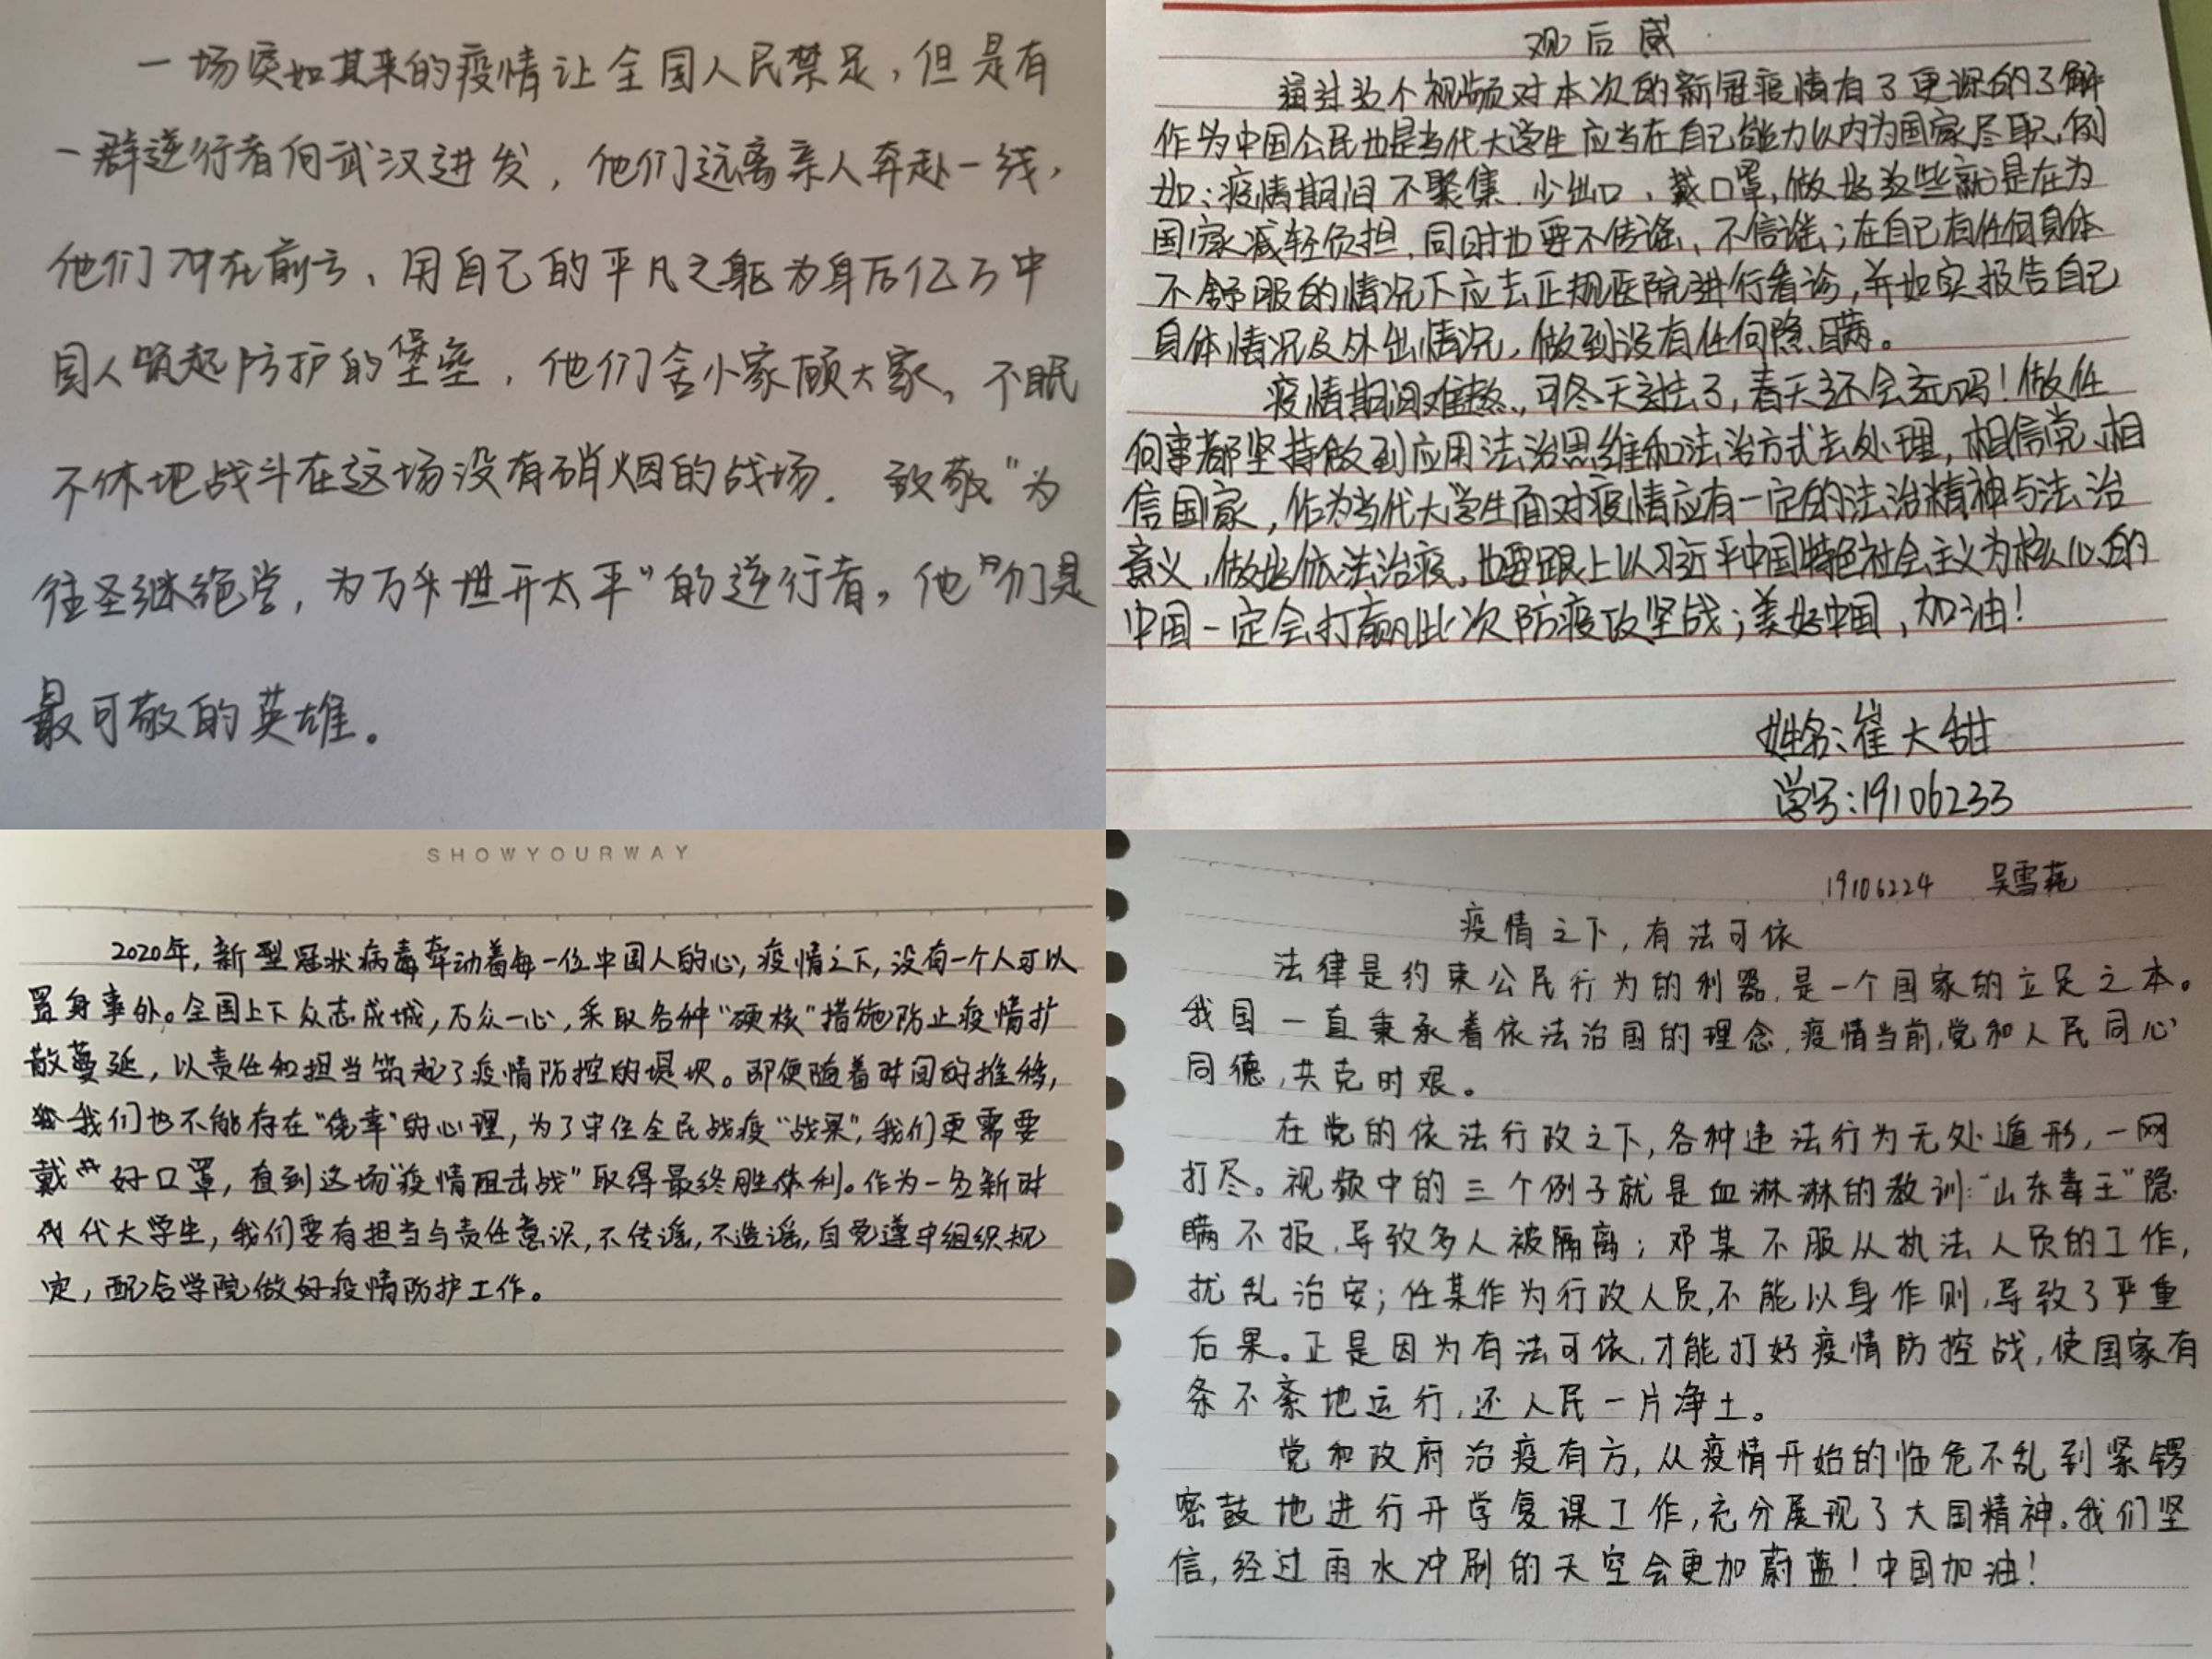 一场突如其来的疫情让全国人民禁足,但是有
一群逆行者向武汉进发,他们远离亲人奔赴一线,
他们冲在前方、用自己的平凡之躯为身后亿万中
国人筑起防护的堡垒,他们舍小家顾大家,不眠
不休地战斗在这场没有硝烟的战场. 致敬"为
往圣继绝学,为万世开太平"的逆行者,他们是
最可敬的英雄。
观后感
通过这个视频对本次的新冠疫情有了更深的了解
作为中国公民也是当代大学生应当在自己能力以内为国家尽职,例
如:疫情期间不聚集.少出口、戴口罩,做好这些就是在为
国家减轻负担,同时也要不传谣、不信谣;在自己有任何身体
不舒服的情况下应去正规医院进行看诊,并如实报告自己
身体情况及外出情况,做到没有任何隐瞒。
疫情期间难熬,可冬天过去了,春天还会远吗!做任
何事都坚持做到应用法治思维和法治方式去处理,相信党、相
信国家,作为当代大学生面对疫情应有一定的法治精神与法治
意义,做好依法治疫,也要跟上以习近平中国特色社会主义为核心的
中国一定会打赢此次防疫攻坚战;美好中国,加油!
姓名:崔大甜
学号:19106233
SHOWYOURWAY
2020年,新型冠状病毒牵动着每一位中国人的心,疫情之下,没有一个人可以
置身事外。全国上下众志成城,万众一心,采取各种"硬核"措施防止疫情扩
散蔓延,以责任和担当筑起了疫情防控的堤坝。即便随着时间的推移,
我们也不能存在"侥幸"的心理,为了守住全民战疫"战果",我们更需要
戴好口罩,直到这场"疫情阻击战"取得最终胜利。作为一名新时
代大学生,我们要有担当与责任意识,不传谣,不造谣,自觉遵守组织规
定,配合学院做好疫情防护工作。
19106224 吴雪莼
疫情之下,有法可依
法律是约束公民行为的利器,是一个国家的立足之本。
我国一直秉承着依法治国的理念,疫情当前,党和人民同心
同德,共克时艰。
在党的依法行政之下,各种违法行为无处遁形,一网
打尽。视频中的三个例子就是血淋淋的教训:"山东毒王"隐
瞒不报,导致多人被隔离;邓某不服从执法人员的工作,
扰乱治安;任某作为行政人员,不能以身作则,导致了严重
后果。正是因为有法可依,才能打好疫情防控战,使国家有
条不紊地运行,还人民一片净土。
党和政府治疫有方,从疫情开始的临危不乱到紧锣
密鼓地进行开学复课工作,充分展现了大国精神。我们坚
信,经过雨水冲刷的天空会更加蔚蓝!中国加油!